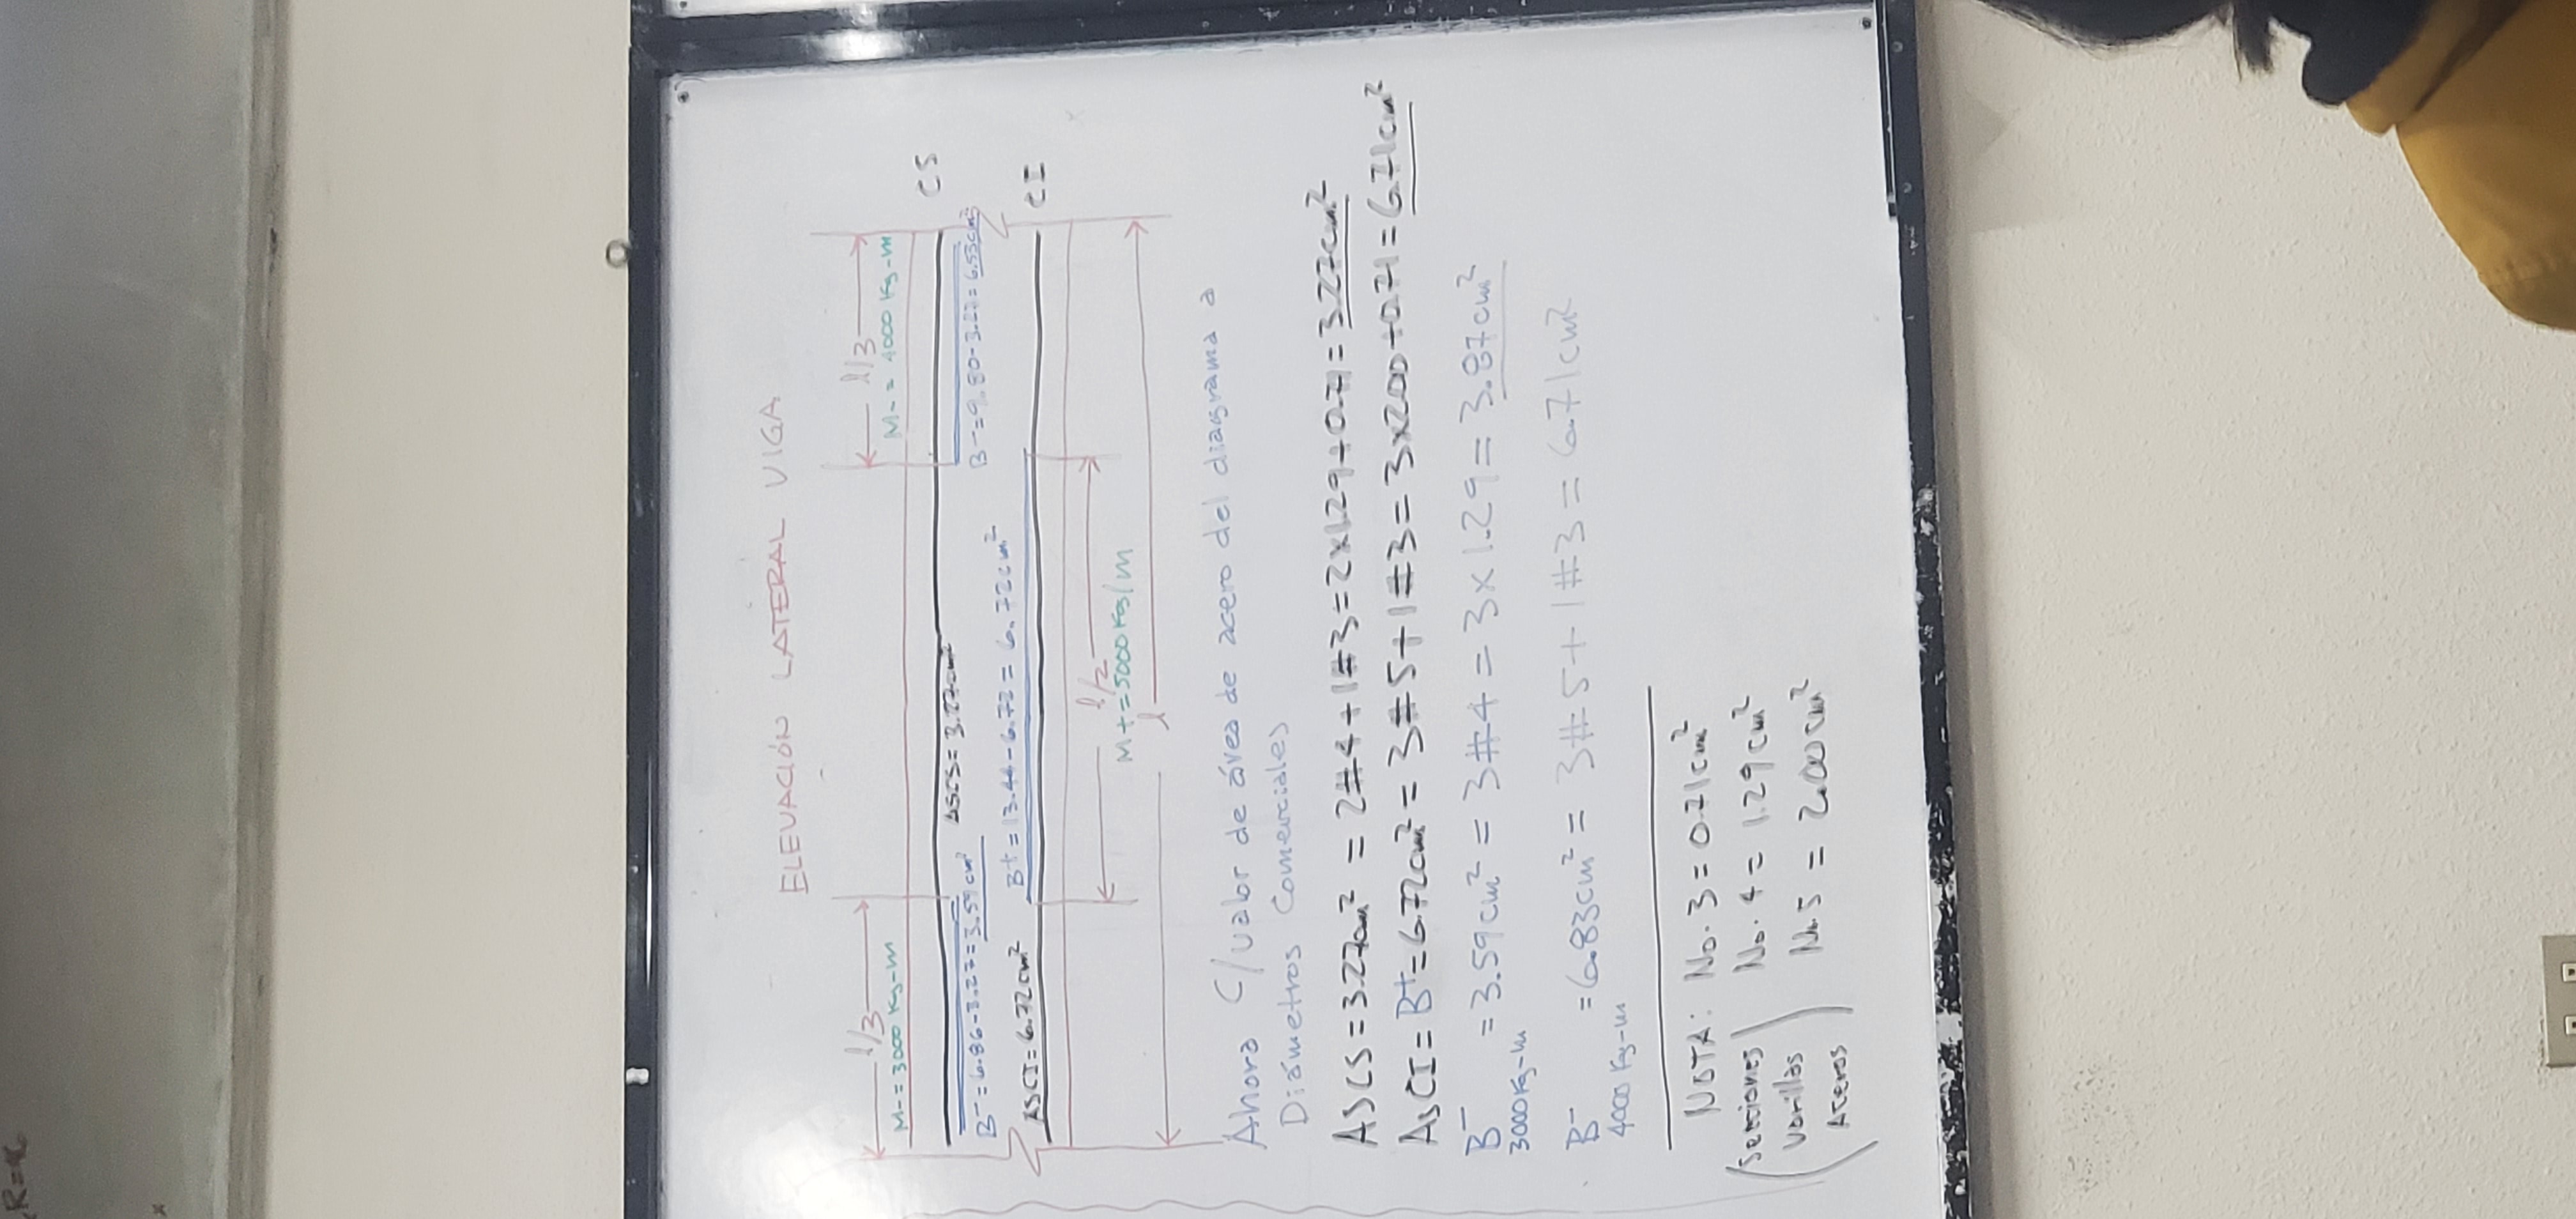 R=
ELEVACIÓN LATERAL VIGA
l/3 l/3
M-=3000 Kg-m M-= 4000 Kg-m
CS
ASCS=3.27cm²
B-=6.86-3.27=3.59cm² B-=9.80-3.27=6.53cm²
ASCI=6.72cm² B+=13.44-6.72=6.72cm²
CI
l/2
M+=5000 Kg/m
l
Ahora C/valor de área de acero del diagrama a
Diámetros Comerciales
ASCS=3.27cm² = 2#4+1#3=2x1.29+0.71=3.27cm²
AsCI=B+=6.72cm²=3#5+1#3=3x2.00+0.71=6.71cm²
B- =3.59cm²=3#4=3x1.29=3.87cm²
3000Kg-m
B- =6.83cm²= 3#5+1#3=6.71cm²
4000 Kg-m
NOTA: No.3=0.71cm²
(Secciones Varillas Aceros) No.4=1.29cm²
No.5 = 2.00cm²